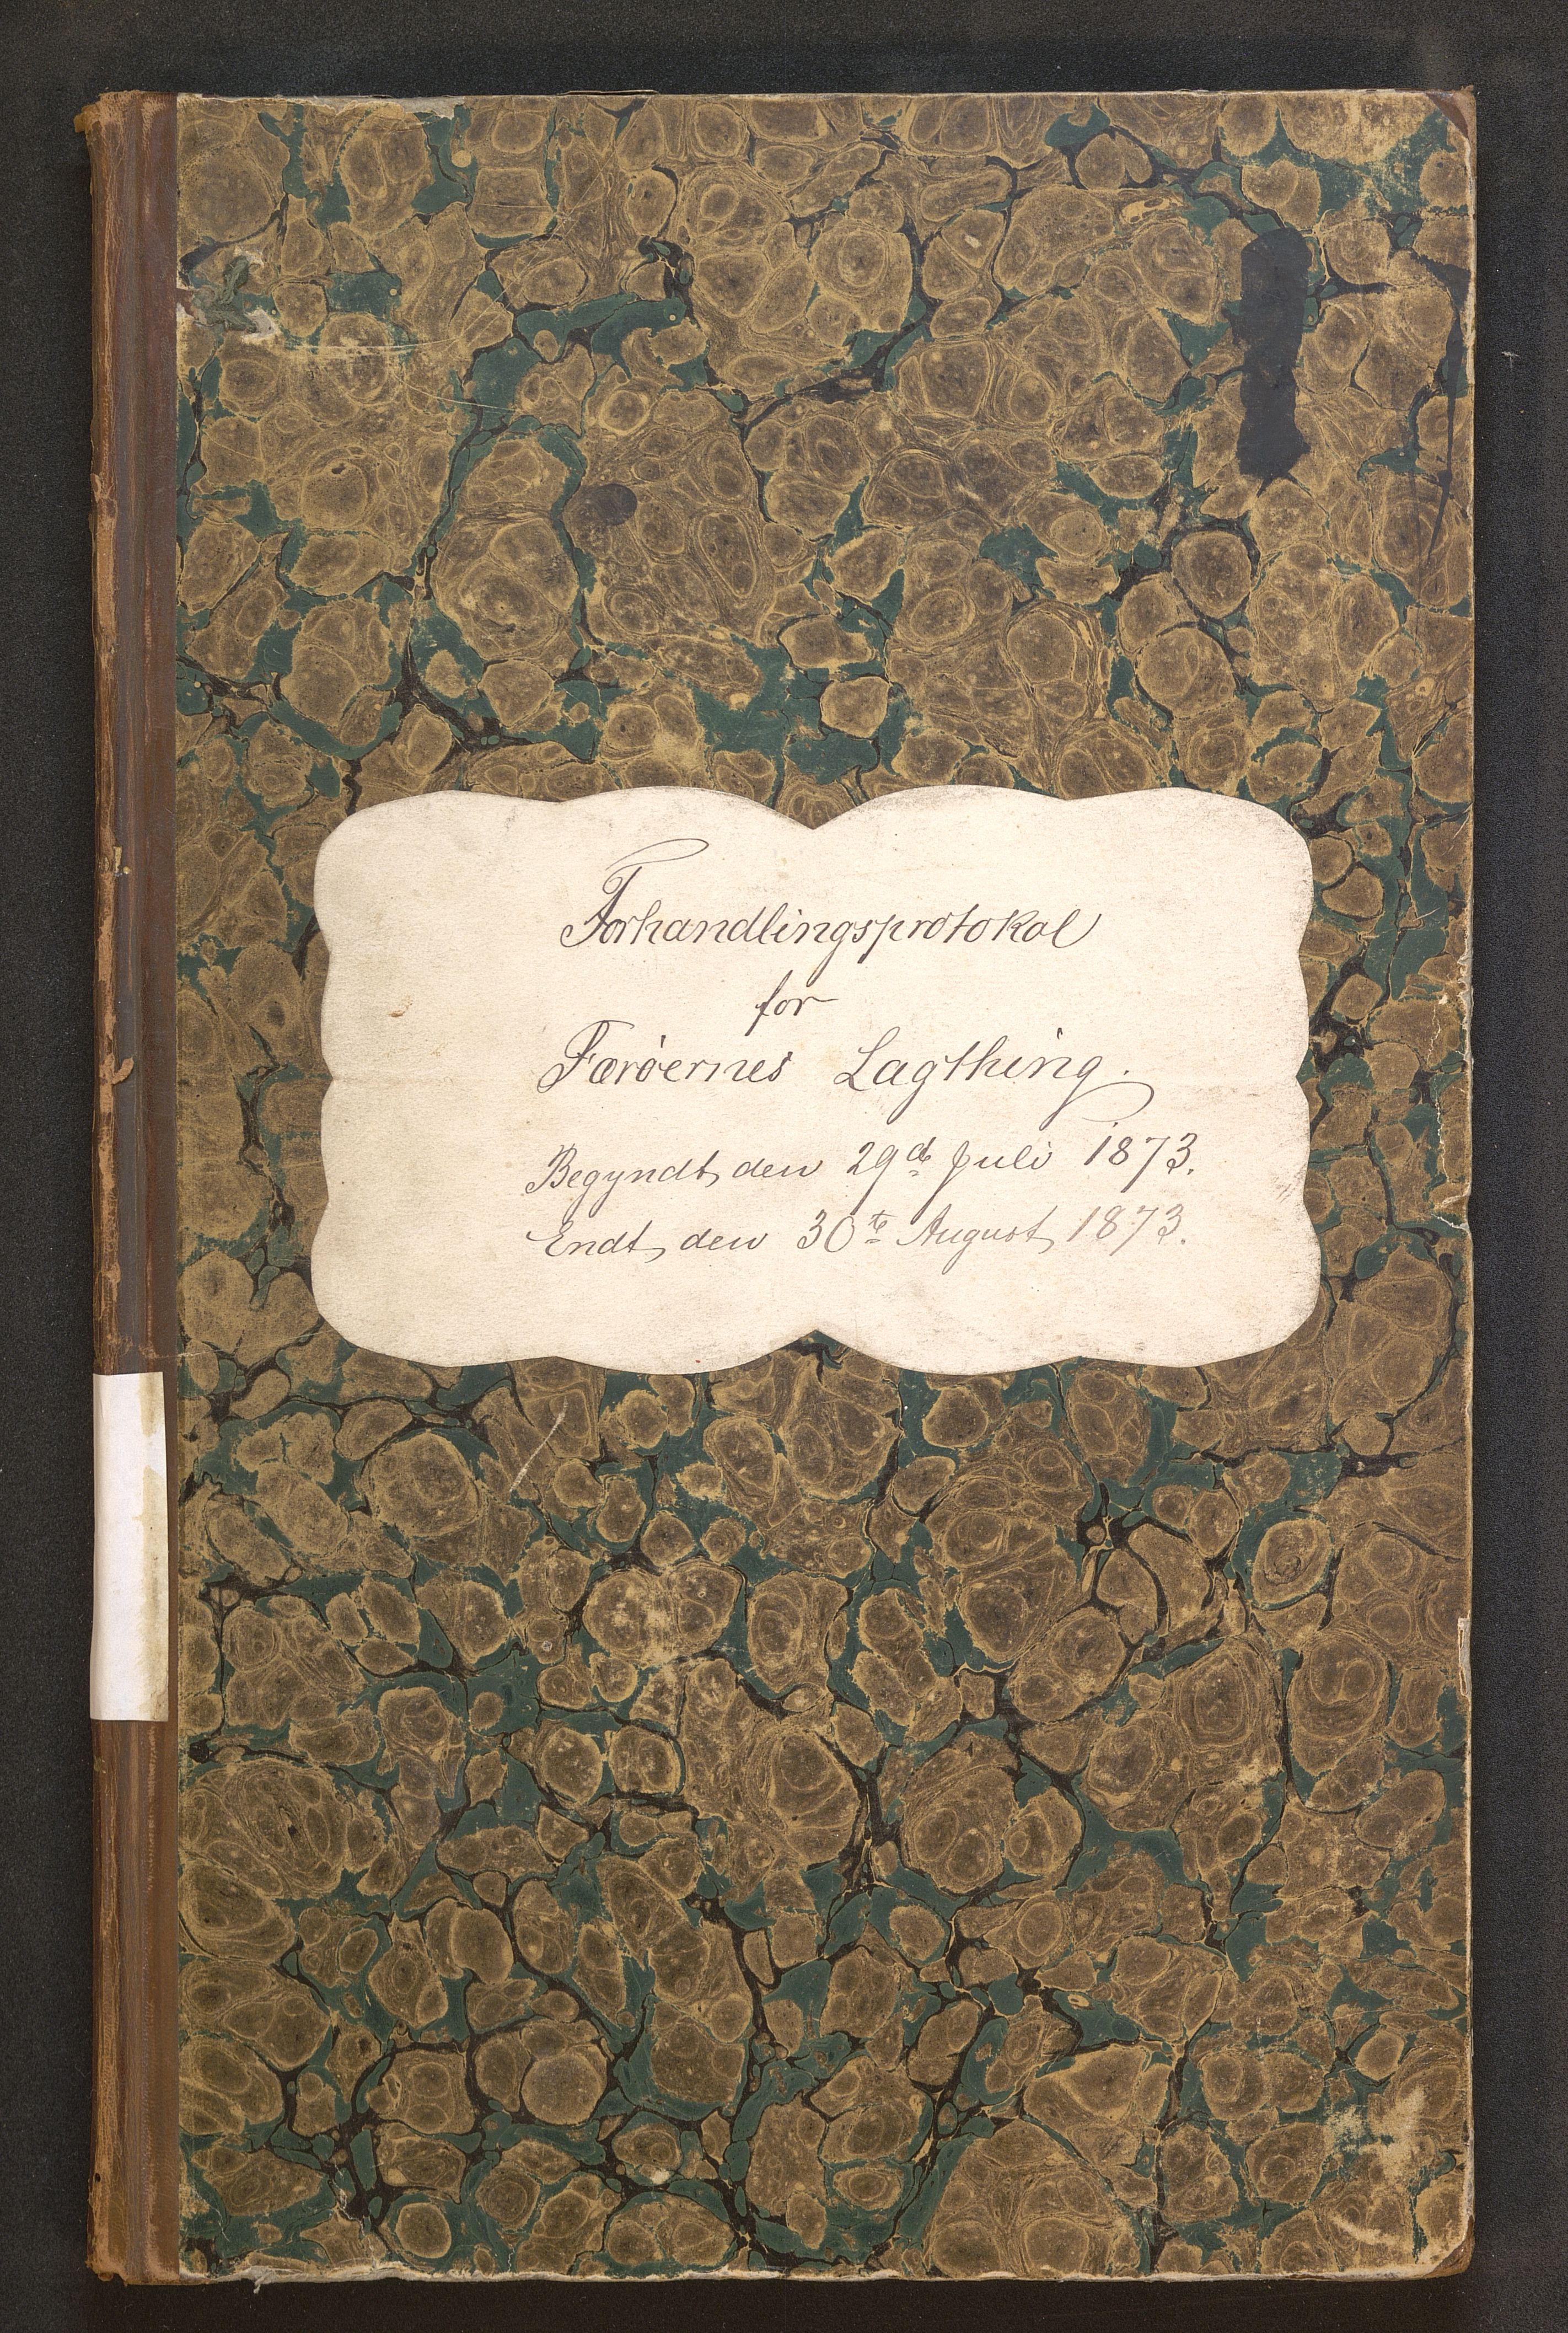 Forhandlingsprotokol
for
Færøernes Lagthing.
Begyndt den 29d Juli 1873.
Endt den 30te August 1873.